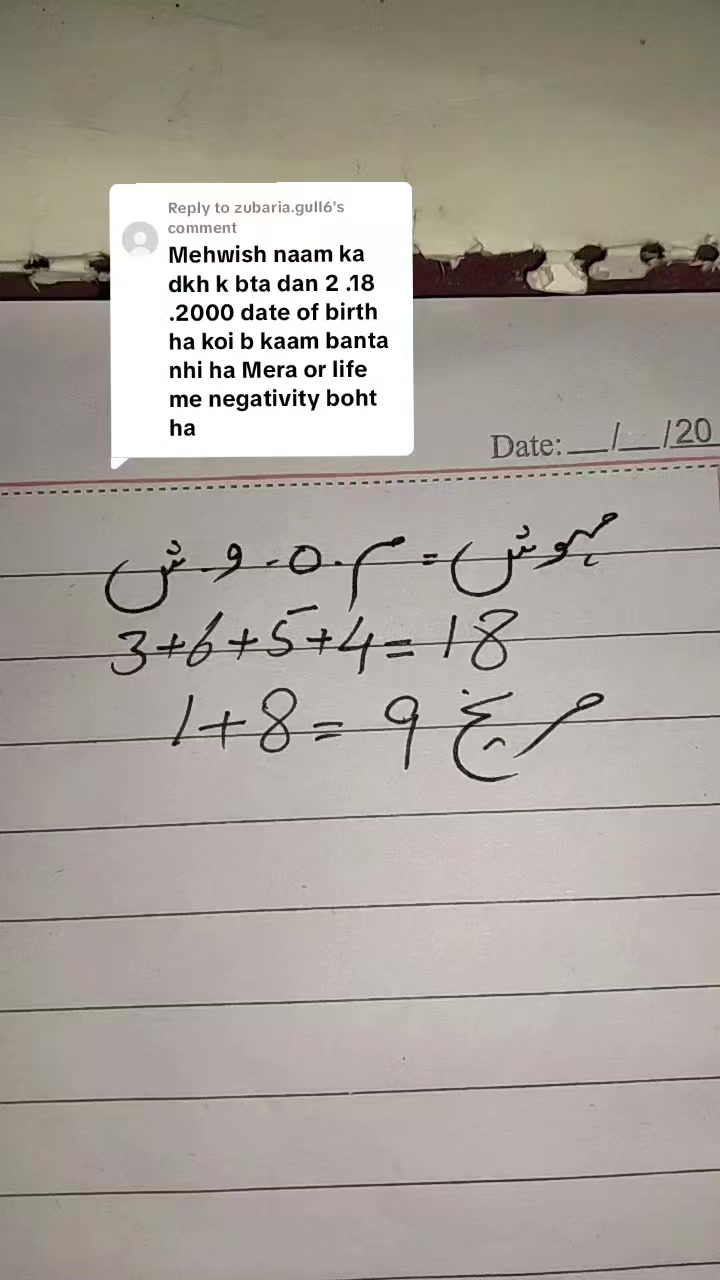 Reply to zubaria.gull6's
comment
Mehwish naam ka
dkh k bta dan 2 .18
.2000 date of birth
ha koi b kaam banta
nhi ha Mera or life
me negativity boht
ha
Date: __/__/20
مہوش = م . ہ . و . ش
3+6+5+4=18
1+8=9 مریخ